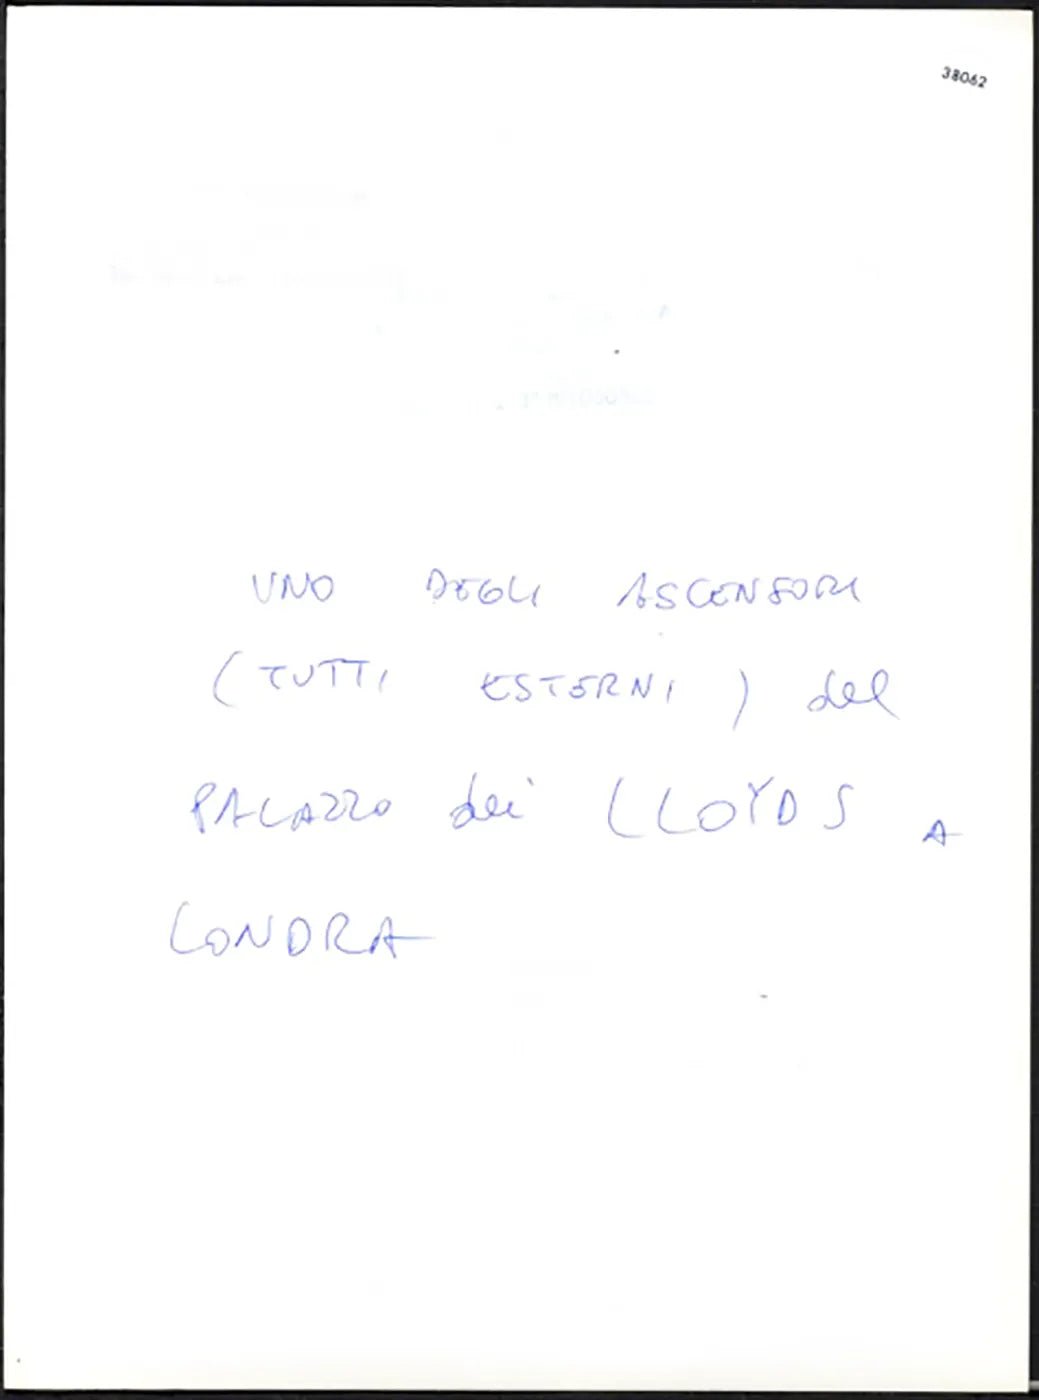 38062
UNO DEGLI ASCENSORI
(TUTTI ESTERNI) del
PALAZZO dei LLOYDS A
LONDRA